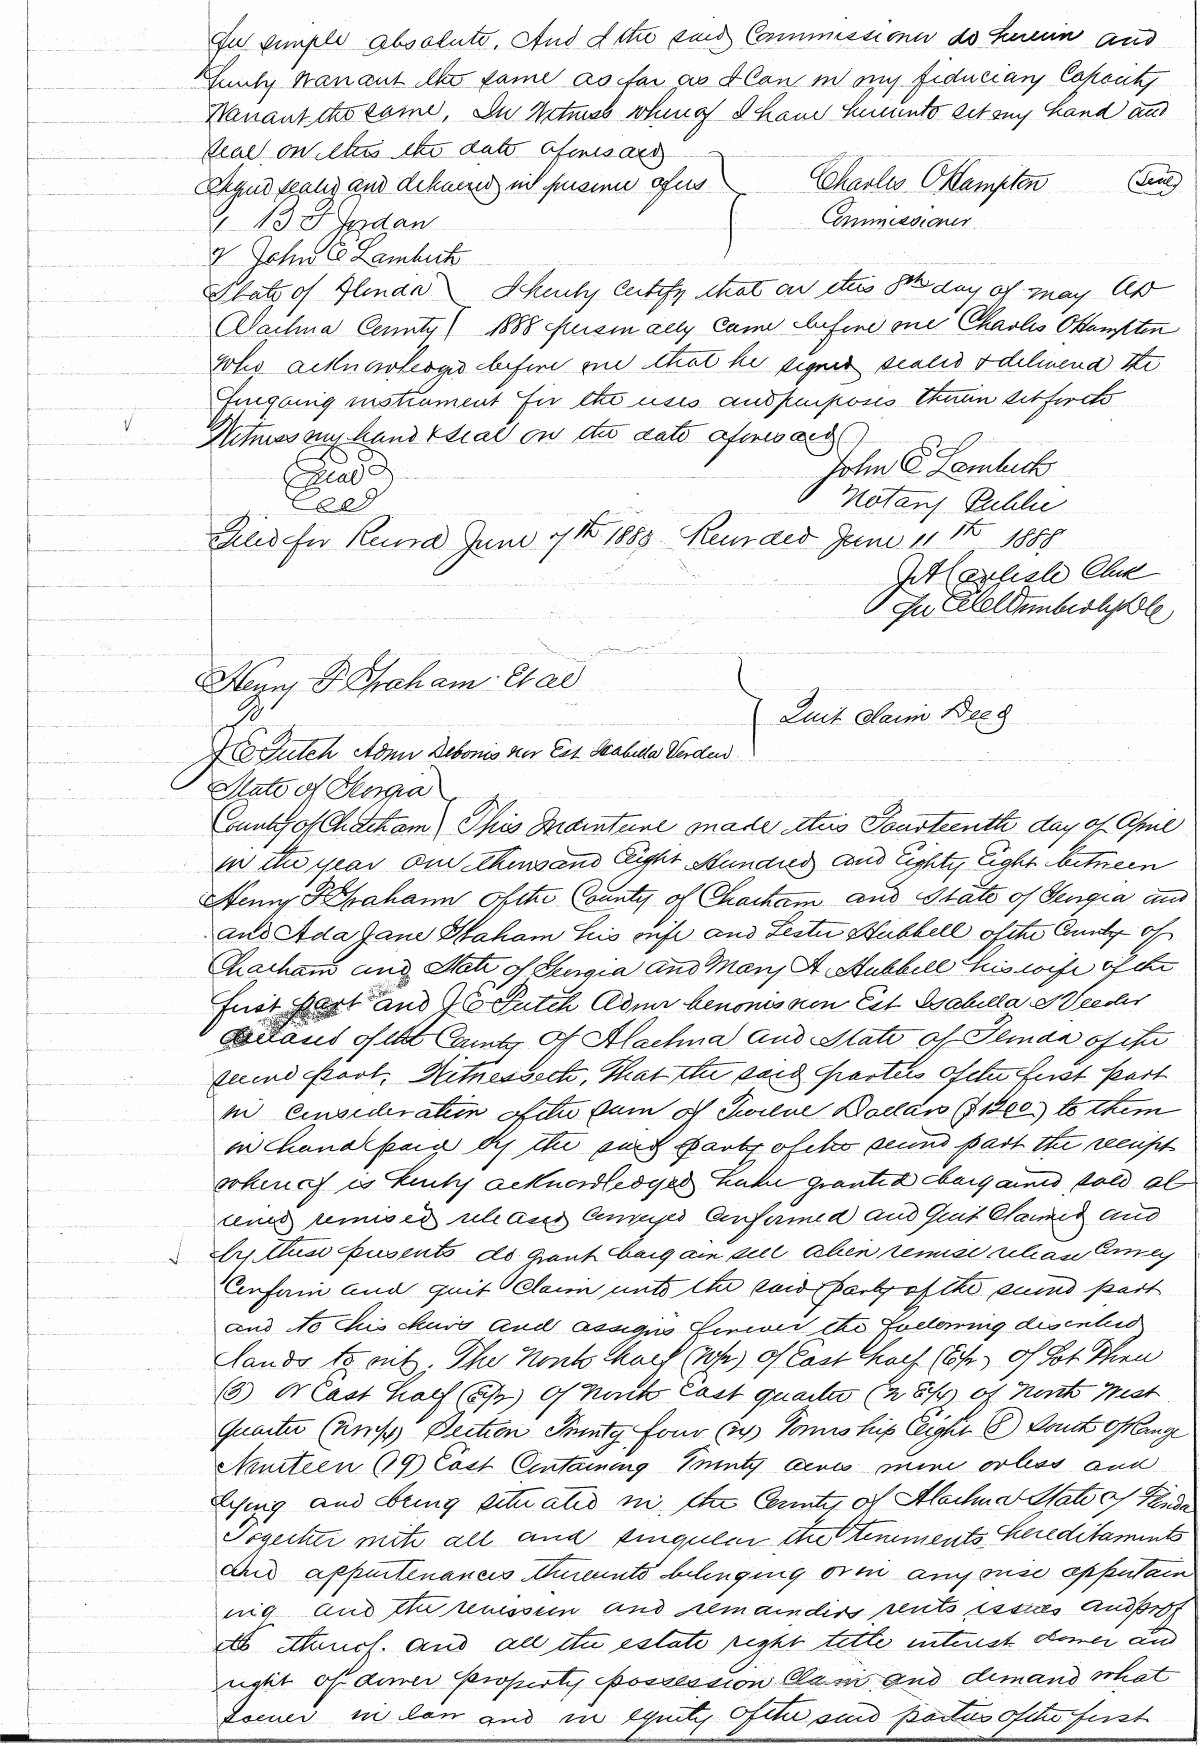 Fee simple absolute. And I the said Commissioner do herein and
hereby warrant the same as far as I Can in my fiduciary Capacity
Warrant the same, In Witness whereof I have hereunto set my hand and
seal on this the date aforesaid
Signed sealed and delivered in presence of us
Charles O Hampton (Seal)
1 B F Jordan
Commissioner
2 John E Lambeth
State of Florida I hereby Certify that on this 8th day of May AD
Alachua County 1888 personally came before me Charles O Hampton
who acknowledged before me that he signed sealed & delivered the
foregoing instrument for the uses and purposes therein set forth
Witness my hand & seal on the date aforesaid
Seal
John E Lambeth
Notary Public
Filed for Record June 7th 1888 Recorded June 11th 1888
J A Carlisle Clerk
Per
Henry F Graham Et al
To
Quit Claim Deed
J E Futch Admr Debonis non Est Isabella
State of Georgia
County of Chatham This Indenture made this Fourteenth day of April
in the year one thousand Eight Hundred and Eighty Eight between
Henry F Graham of the County of Chatham and State of Georgia and
and Ada Jane Graham his wife and Lester Hubbell of the County of
Chatham and State of Georgia and Mary A Hubbell his wife of the
first part and J E Futch Admr benonis non Est Isabella
deceased of the County of Alachua and State of Florida of the
second part, Witnesseth, That the said parties of the first part
in consideration of the sum of Twelve Dollars ($12.00) to them
in hand paid by the said party of the second part the receipt
whereof is hereby acknowledged have granted bargained sold al
iened remised released conveyed confirmed and Quit Claimed and
by these presents do grant bargain sell alien remise release Convey
Confirm and quit Claim unto the said party of the second part
and to his heirs and assigns forever the following described
lands to wit. The North half (N½) of East half (E½) of Lot Three
(3) or East half (E½) of North East quarter (N E¼) of North West
Quarter (NW¼) Section Twenty four (24) Township Eight (8) South of Range
Nineteen (19) East Containing Twenty acres more or less and
lying and being situated in the County of Alachua State of Florida
Together with all and singular the tenements hereditaments
and appurtenances thereunto belonging or in any wise appertain
ing and the reversion and remainders rents issues and prof
its thereof. and all the estate right title interest dower and
right of dower property possession Claim and demand what
soever in law and in equity of the said parties of the first